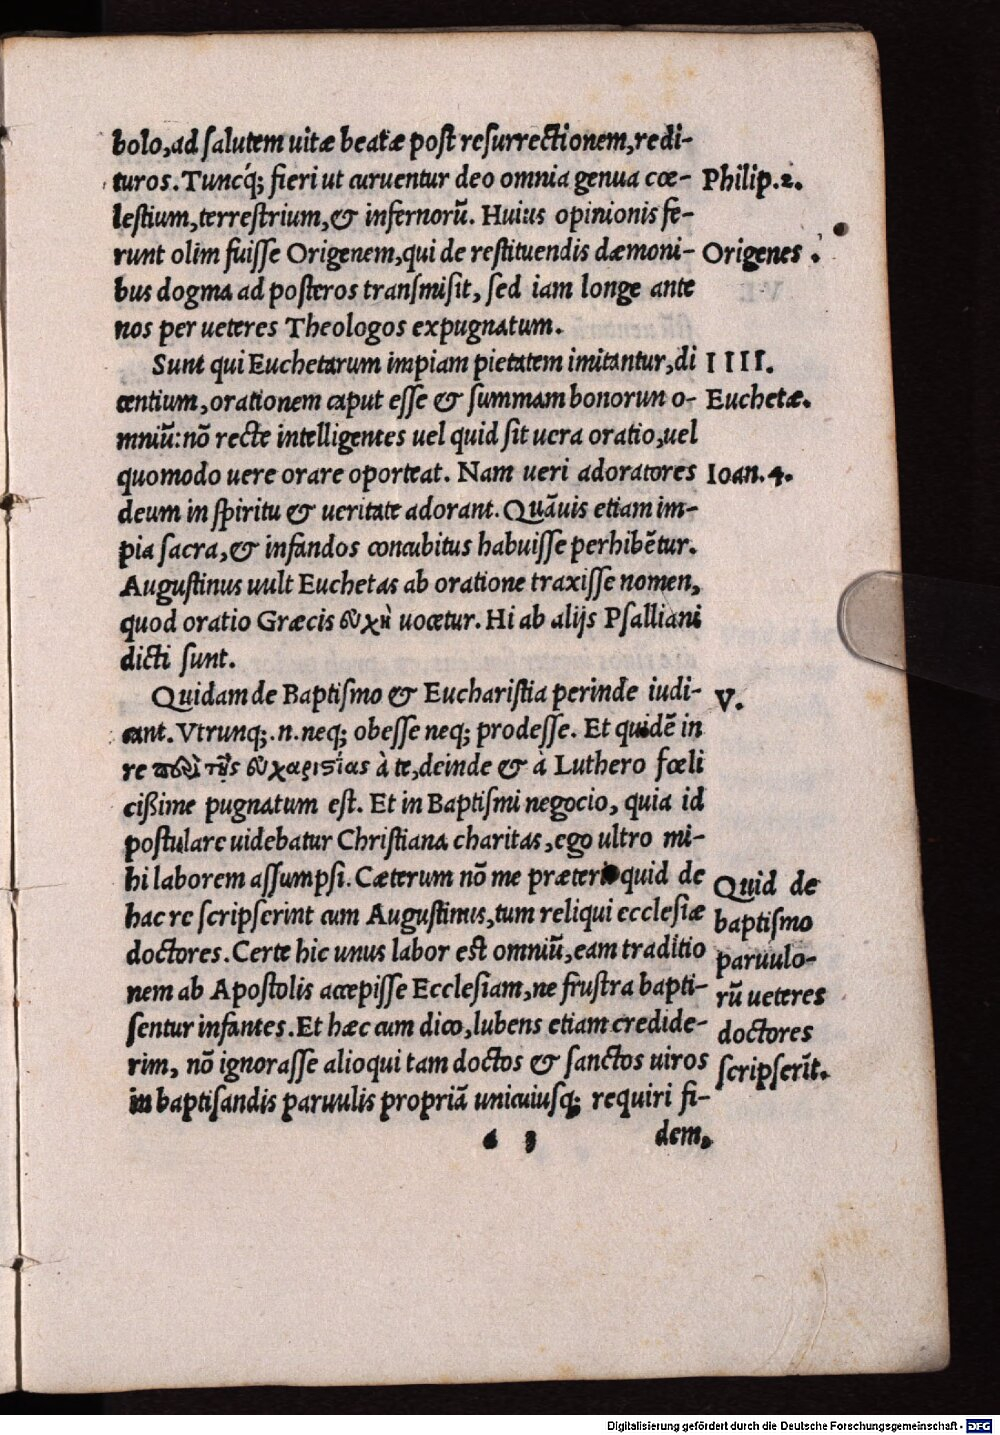 bolo, ad salutem uitæ beatæ post resurrectionem, redi-
turos. Tuncq́; fieri ut curuentur deo omnia genua cœ- Philip.2.
lestium, terrestrium, & infernorū. Huius opinionis fe-
runt olim fuisse Origenem, qui de restituendis dæmoni- Origenes.
bus dogma ad posteros transmisit, sed iam longe ante
nos per ueteres Theologos expugnatum.
Sunt qui Euchetarum impiam pietatem imitantur, di IIII.
centium, orationem caput esse & summam bonorun o- Euchetæ.
mniū: nō recte intelligentes uel quid sit uera oratio, uel
quomodo uere orare oporteat. Nam ueri adoratores Ioan.4.
deum in spiritu & ueritate adorant. Quāuis etiam im-
pia sacra, & infandos concubitus habuisse perhibētur.
Augustinus uult Euchetas ab oratione traxisse nomen,
quod oratio Græcis εὐχὴ uocetur. Hi ab alijs Psalliani
dicti sunt.
Quidam de Baptismo & Eucharistia perinde iudi- V.
cant. Vtrunq;.n.neq; obesse neq; prodesse. Et quidē in
re περὶ τῆς εὐχαριστίας à te, deinde & à Luthero fœli
cißime pugnatum est. Et in Baptismi negocio, quia id
postulare uidebatur Christiana charitas, ego ultro mi-
hi laborem assumpsi. Cæterum nō me præterit quid de Quid de
hac re scripserint cum Augustinus, tum reliqui ecclesiæ baptismo
doctores. Certe hic unus labor est omniū, eam traditio paruulo-
nem ab Apostolis accepisse Ecclesiam, ne frustra bapti- rū ueteres
sentur infantes. Et hæc cum dico, lubens etiam credide- doctores
rim, nō ignorasse alioqui tam doctos & sanctos uiros scripserīt.
in baptisandis paruulis propriā unicuiusq; requiri fi-
3 dem,
Digitalisierung gefördert durch die Deutsche Forschungsgemeinschaft - DFG